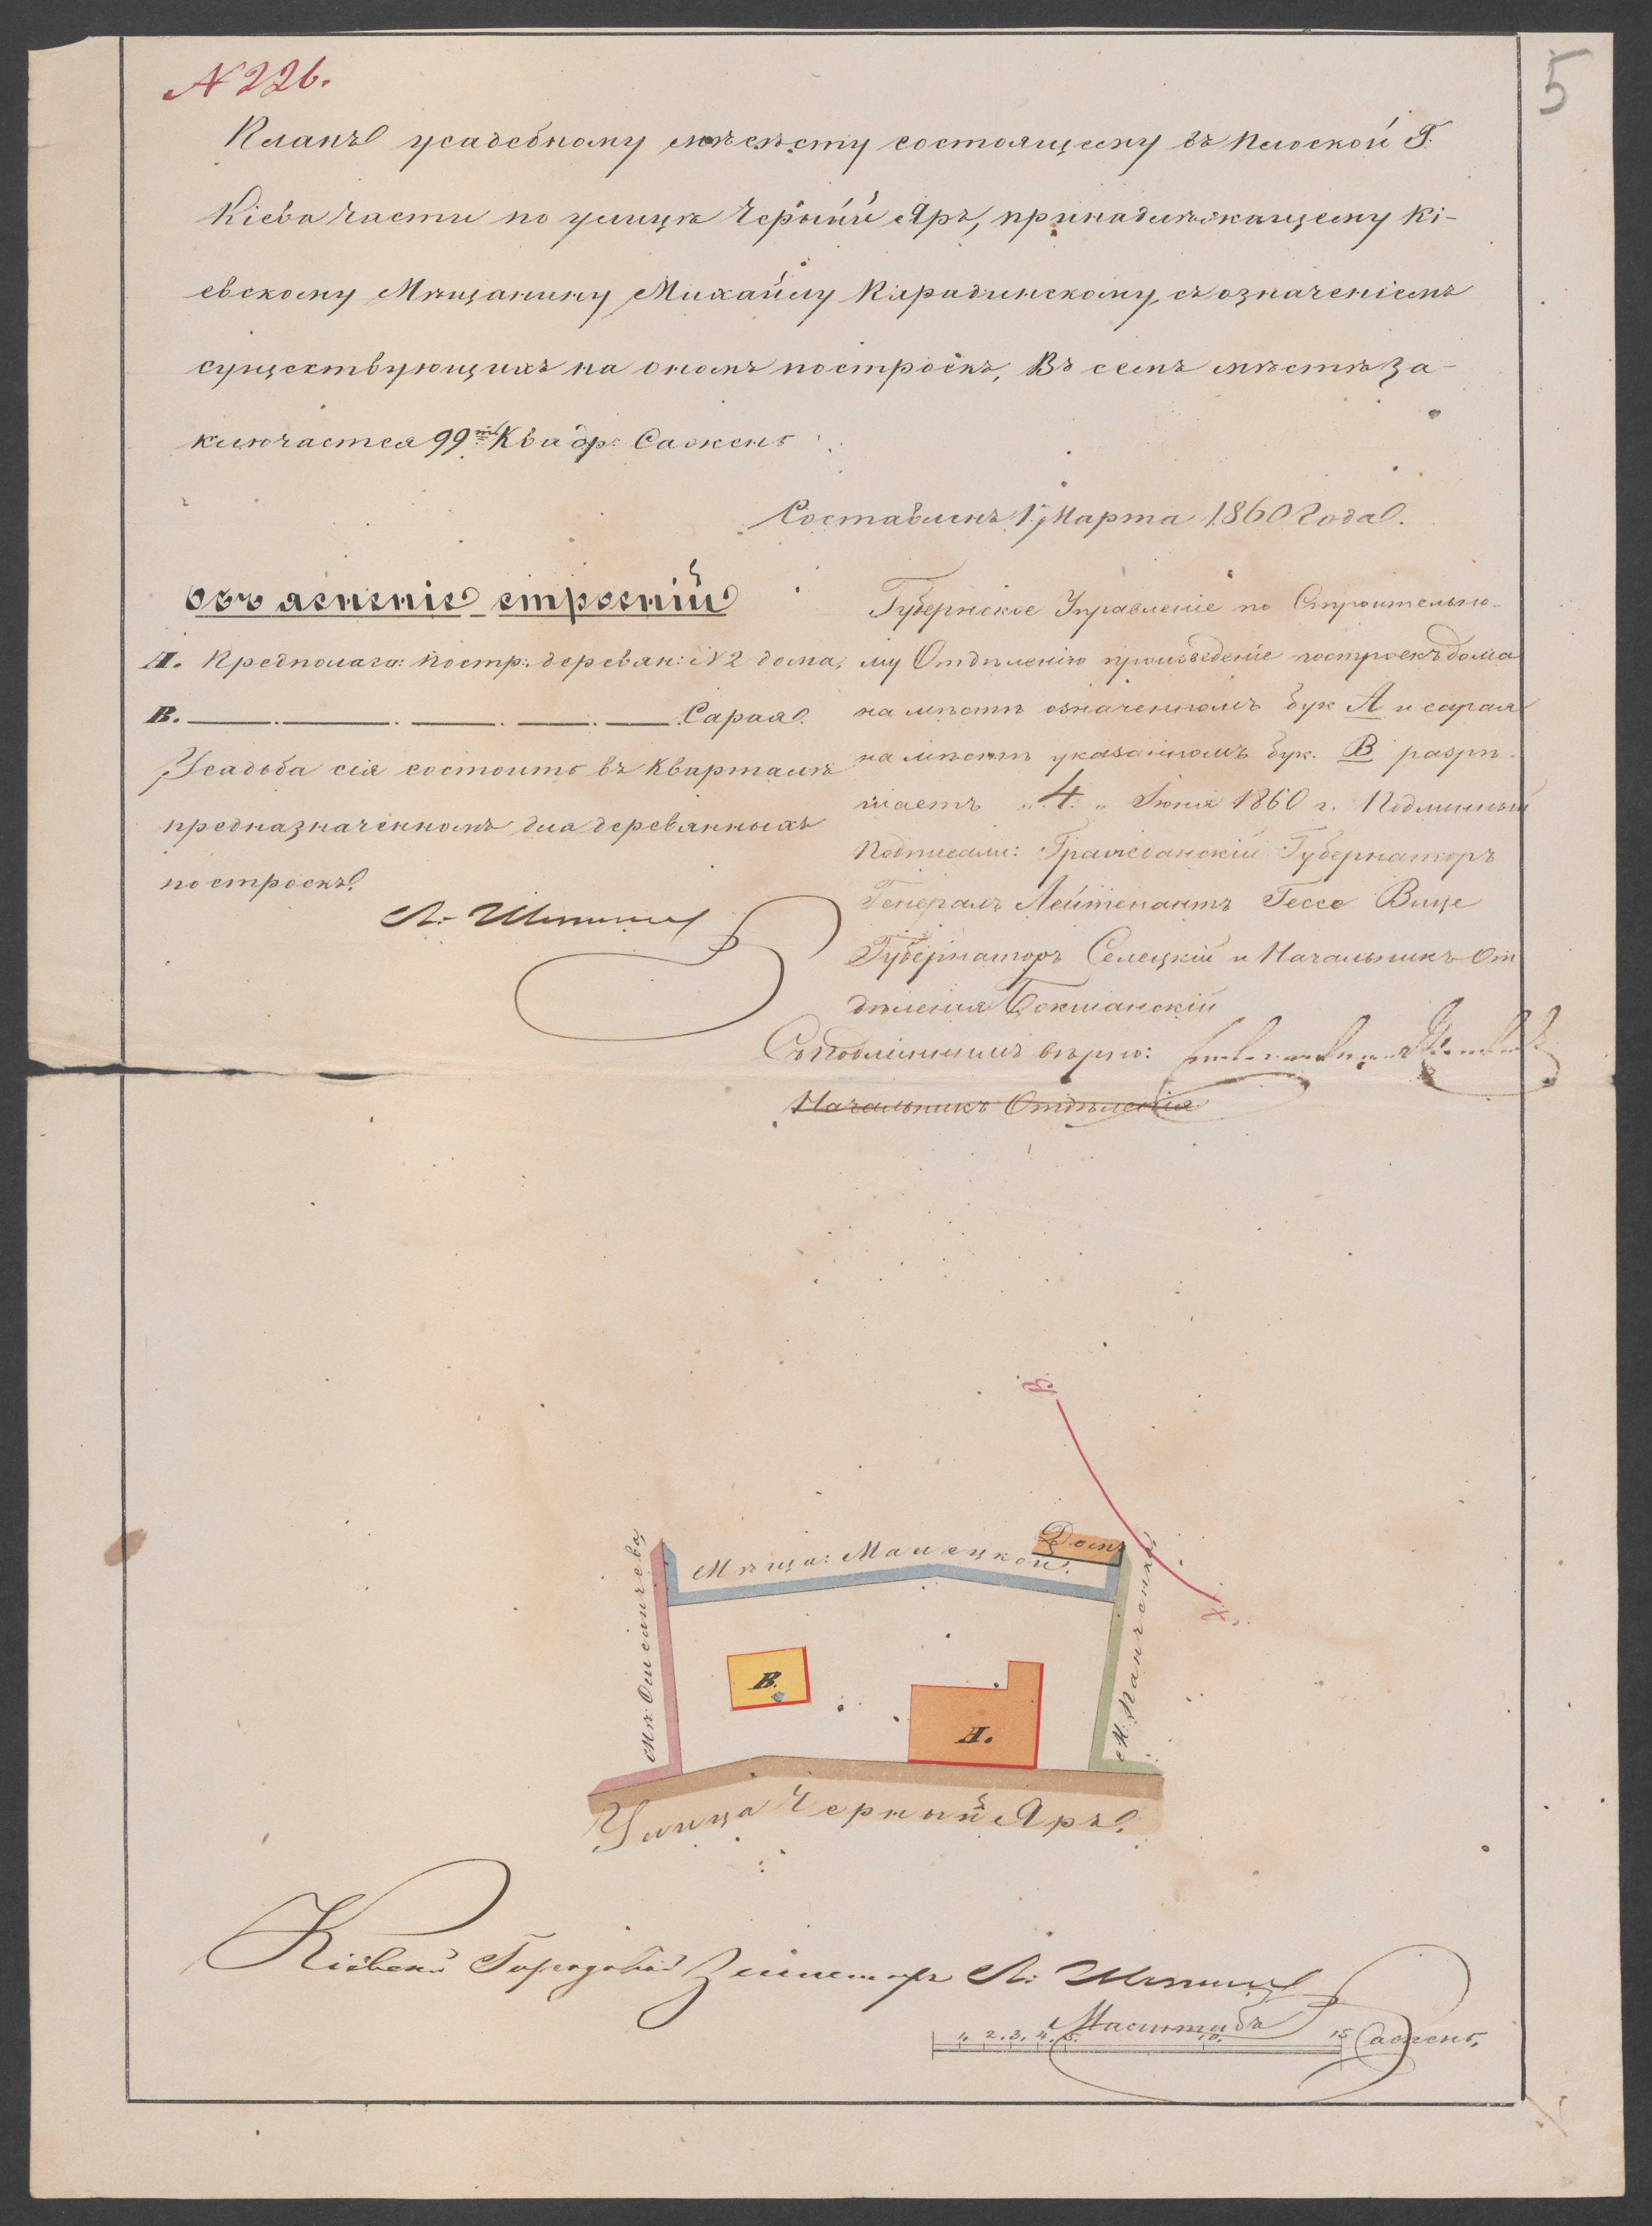 N 226.
5
Планъ усадебному мѣсту состоящему въ плоской Г.
Кіева части по улицѣ Черный Яръ, принадлежащему Кі-
евскому Мѣщанину Михайлу Карадинскому, съ означеніемъ
существующихъ на ономъ построекъ, Въ семъ мѣстѣ за-
ключается 99 Квадр: Сажень
Составленъ 1 Марта 1860 Года.
Объясненіе строеній
А. Предполага: постр: деревян: N 2 дома,
В. Сарая.
Усадьба сія состоитъ въ кварталѣ
предназначенномъ для деревянныхъ
построекъ.
Губернское Управленіе по Строительно-
му Отдѣленію произведеніе построекъ дома
на мѣстѣ означенномъ бук А и сарая
на мѣстѣ указанномъ бук. В разрѣ-
шаетъ „4„ Іюня 1860 г. Подлинный
подписали: Гражданскій Губернаторъ
Генералъ Лейтенантъ Гессе Вице
Губернаторъ Селецкій и Начальникъ От
дѣленія Бокшанскій
Съ подлиннымъ вѣрно:
Начальникъ Отдѣленія
Мѣща: Малецкой.
Домъ
В.
А.
Улица Черный Яръ.
Кіевскій Городовой Землемѣръ
Масштабъ
1. 2. 3. 4. 5. 10. 15 Сажень.